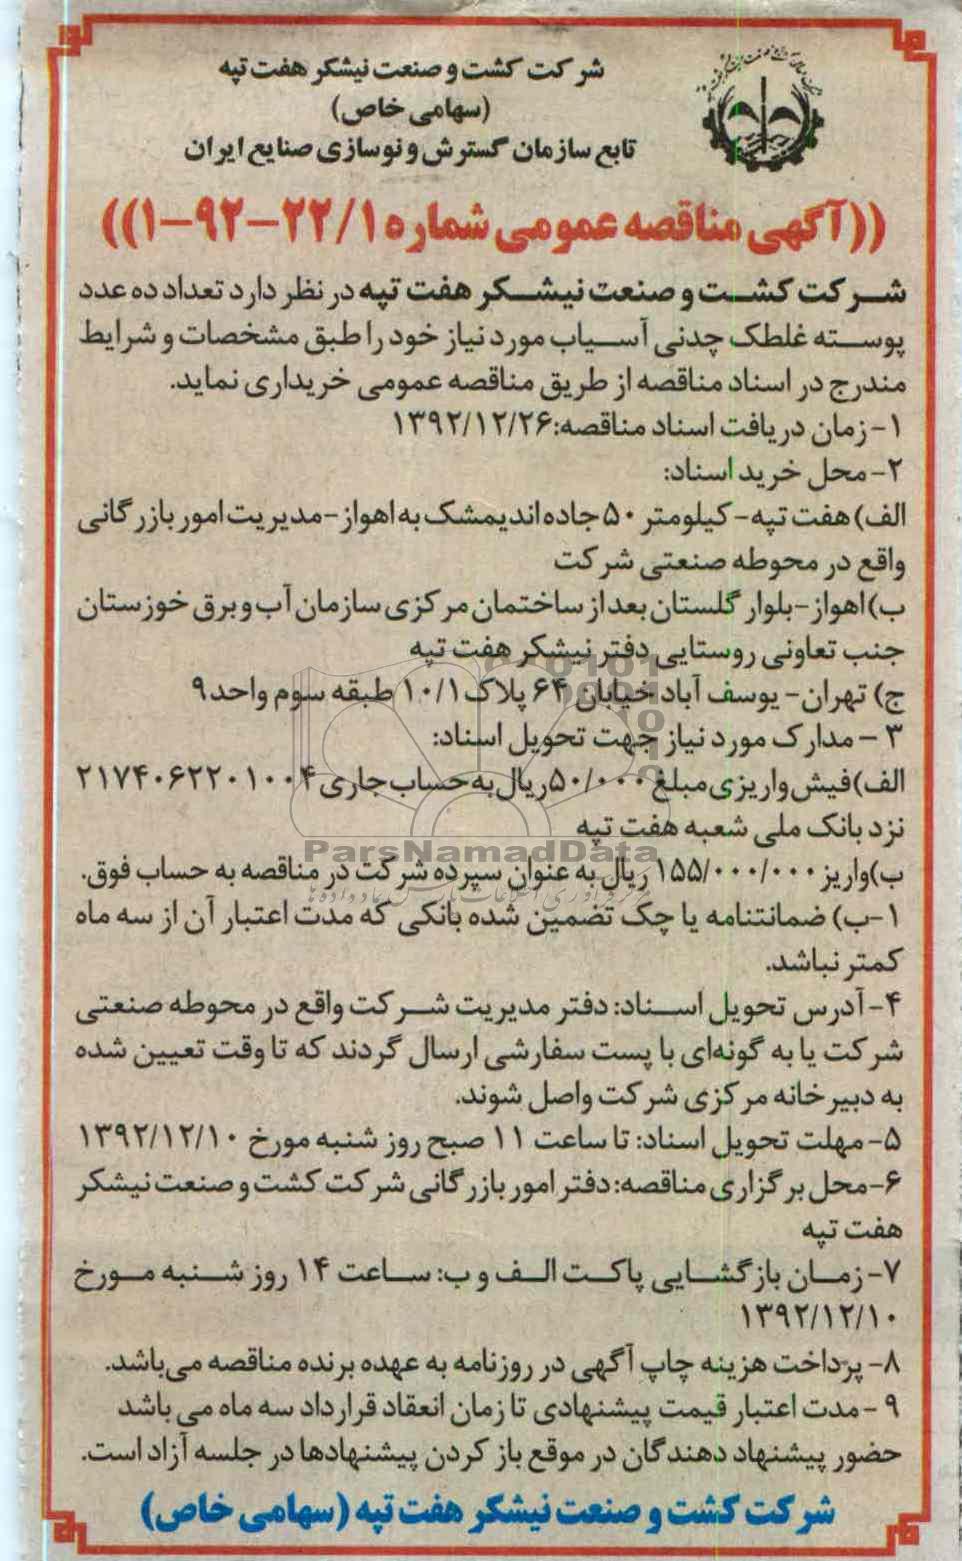 شرکت کشت و صنعت نیشکر هفت تپه
(سهامی خاص)
تابع سازمان گسترش و نوسازی صنایع ایران
((آگهی مناقصه عمومی شماره ۲۲/۱-۹۲-۱))
شرکت کشت و صنعت نیشکر هفت تپه در نظر دارد تعداد ده عدد
پوسته غلطک چدنی آسیاب مورد نیاز خود را طبق مشخصات و شرایط
مندرج در اسناد مناقصه از طریق مناقصه عمومی خریداری نماید.
۱- زمان دریافت اسناد مناقصه:۱۳۹۲/۱۲/۲۶
۲- محل خرید اسناد:
الف) هفت تپه- کیلومتر ۵۰ جاده اندیمشک به اهواز-مدیریت امور بازرگانی
واقع در محوطه صنعتی شرکت
ب)اهواز-بلوار گلستان بعد از ساختمان مرکزی سازمان آب و برق خوزستان
جنب تعاونی روستایی دفتر نیشکر هفت تپه
ج) تهران- یوسف آباد خیابان ۶۴ پلاک ۱۰/۱ طبقه سوم واحد ۹
۳ - مدارک مورد نیاز جهت تحویل اسناد:
الف)فیش واریزی مبلغ ۵۰/۰۰۰ ریال به حساب جاری ۲۱۷۴۰۶۲۲۰۱۰۰۴
نزد بانک ملی شعبه هفت تپه
ParsNamadData
ب)واریز ۱۵۵/۰۰۰/۰۰۰ ریال به عنوان سپرده شرکت در مناقصه به حساب فوق.
۱-ب) ضمانتنامه یا چک تضمین شده بانکی که مدت اعتبار آن از سه ماه
کمتر نباشد.
۴- آدرس تحویل اسناد: دفتر مدیریت شرکت واقع در محوطه صنعتی
شرکت یا به گونه‌ای با پست سفارشی ارسال گردند که تا وقت تعیین شده
به دبیرخانه مرکزی شرکت واصل شوند.
۵- مهلت تحویل اسناد: تا ساعت ۱۱ صبح روز شنبه مورخ ۱۳۹۲/۱۲/۱۰
۶-محل برگزاری مناقصه: دفتر امور بازرگانی شرکت کشت و صنعت نیشکر
هفت تپه
۷- زمان بازگشایی پاکت الف و ب: ساعت ۱۴ روز شنبه مورخ
۱۳۹۲/۱۲/۱۰
۸- پرداخت هزینه چاپ آگهی در روزنامه به عهده برنده مناقصه می‌باشد.
۹ - مدت اعتبار قیمت پیشنهادی تا زمان انعقاد قرارداد سه ماه می باشد
حضور پیشنهاد دهندگان در موقع باز کردن پیشنهادها در جلسه آزاد است.
شرکت کشت و صنعت نیشکر هفت تپه (سهامی خاص)